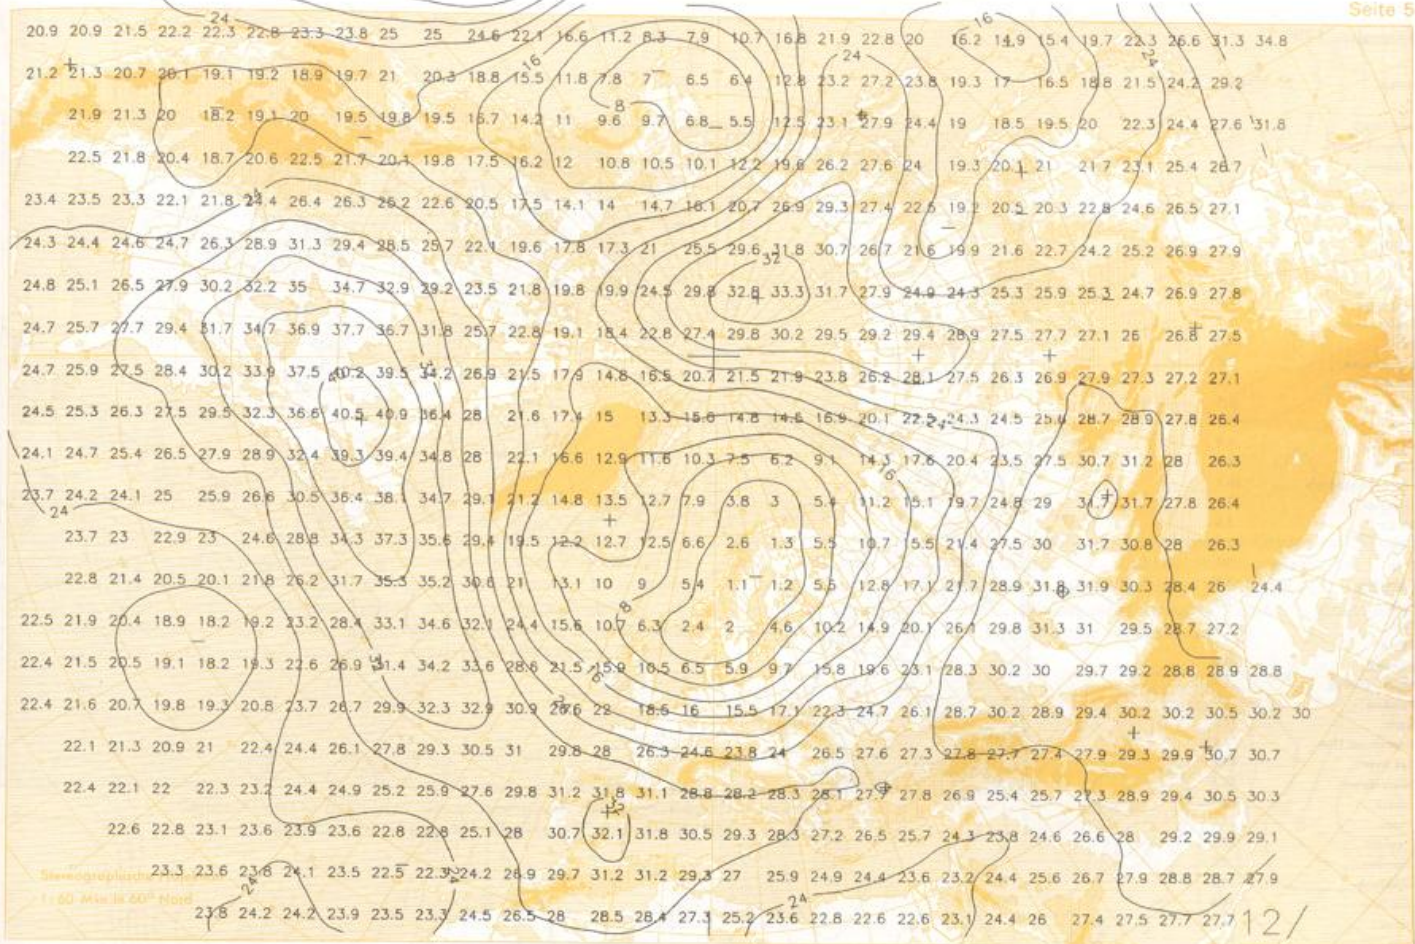 Seite 5
24 16
20.9 20.9 21.5 22.2 22.3 22.8 23.3 23.8 25 25 24.6 22.1 16.6 11.2 8.3 7.9 10.7 16.8 21.9 22.8 20 16.2 14.9 15.4 19.7 22.3 26.6 31.3 34.8
16 24 24
21.2 21.3 20.7 20.1 19.1 19.2 18.9 19.7 21 20.3 18.8 15.5 11.8 7.8 7 6.5 6.4 12.8 23.2 27.2 23.8 19.3 17 16.5 18.8 21.5 24.2 29.2
8
21.9 21.3 20 18.2 19.1 20 19.5 19.8 19.5 16.7 14.2 11 9.6 9.7 6.8 5.5 12.5 23.1 27.9 24.4 19 18.5 19.5 20 22.3 24.4 27.6 31.8
22.5 21.8 20.4 18.7 20.6 22.5 21.7 20.1 19.8 17.5 16.2 12 10.8 10.5 10.1 12.2 19.6 26.2 27.6 24 19.3 20.1 21 21.7 23.1 25.4 26.7
23.4 23.5 23.3 22.1 21.8 24.4 26.4 26.3 26.2 22.6 20.5 17.5 14.1 14 14.7 16.1 20.7 26.9 29.3 27.4 22.5 19.2 20.5 20.3 22.8 24.6 26.5 27.1
24.3 24.4 24.6 24.7 26.3 28.9 31.3 29.4 28.5 25.7 22.1 19.6 17.8 17.3 21 25.5 29.6 31.8 30.7 26.7 21.6 19.9 21.6 22.7 24.2 25.2 26.9 27.9
32
24.8 25.1 26.5 27.9 30.2 32.2 35 34.7 32.9 29.2 23.5 21.8 19.8 19.9 24.5 29.8 32.8 33.3 31.7 27.9 24.9 24.3 25.3 25.9 25.3 24.7 26.9 27.8
24.7 25.7 27.7 29.4 31.7 34.7 36.9 37.7 36.7 31.8 25.7 22.8 19.1 18.4 22.8 27.4 29.8 30.2 29.5 29.2 29.4 28.9 27.5 27.7 27.1 26 26.8 27.5
24.7 25.9 27.5 28.4 30.2 33.9 37.5 40.2 39.5 34.2 26.9 21.5 17.9 14.8 16.5 20.7 21.5 21.9 23.8 26.2 28.1 27.5 26.3 26.9 27.9 27.3 27.2 27.1
24.5 25.3 26.3 27.5 29.5 32.3 36.6 40.5 40.9 36.4 28 21.6 17.4 15 13.3 15.6 14.8 14.6 16.9 20.1 22.5 24.3 24.5 25.6 28.7 28.9 27.8 26.4
24.1 24.7 25.4 26.5 27.9 28.9 32.4 39.3 39.4 34.8 28 22.1 16.6 12.9 11.6 10.3 7.5 6.2 9.1 14.3 17.6 20.4 23.5 27.5 30.7 31.2 28 26.3
16
23.7 24.2 24.1 25 25.9 26.6 30.5 36.4 38.1 34.7 29.1 21.2 14.8 13.5 12.7 7.9 3.8 3 5.4 11.2 15.1 19.7 24.8 29 31.7 31.7 27.8 26.4
24
23.7 23 22.9 23 24.6 28.8 34.3 37.3 35.6 29.4 19.5 12.2 12.7 12.5 6.6 2.6 1.3 5.5 10.7 15.5 21.4 27.5 30 31.7 30.8 28 26.3
22.8 21.4 20.5 20.1 21.8 26.2 31.7 35.3 35.2 30.6 21 13.1 10 9 5.4 1.1 1.2 5.5 12.8 17.1 21.7 28.9 31.8 31.9 30.3 28.4 26 24.4
8
22.5 21.9 20.4 18.9 18.2 19.2 23.2 28.4 33.1 34.6 32.1 24.4 15.6 10.7 6.3 2.4 2 4.6 10.2 14.9 20.1 26.1 29.8 31.3 31 29.5 28.7 27.2
22.4 21.5 20.5 19.1 18.2 19.3 22.6 26.9 31.4 34.2 33.6 28.6 21.5 15.9 10.5 6.5 5.9 9.7 15.8 19.6 23.1 28.3 30.2 30 29.7 29.2 28.8 28.9 28.8
22.4 21.6 20.7 19.8 19.3 20.8 23.7 26.7 29.9 32.3 32.9 30.9 26.6 22 18.5 16 15.5 17.1 22.3 24.7 26.1 28.7 30.2 28.9 29.4 30.2 30.2 30.5 30.2 30
22.1 21.3 20.9 21 22.4 24.4 26.1 27.8 29.3 30.5 31 29.8 28 26.3 24.6 23.8 24 26.5 27.6 27.3 27.8 27.7 27.4 27.9 29.3 29.9 30.7 30.7
22.4 22.1 22 22.3 23.2 24.4 24.9 25.2 25.9 27.6 29.8 31.2 31.8 31.1 28.8 28.2 28.3 28.1 27.7 27.8 26.9 25.4 25.7 27.3 28.9 29.4 30.5 30.3
32
22.6 22.8 23.1 23.6 23.9 23.6 22.8 22.8 25.1 28 30.7 32.1 31.8 30.5 29.3 28.3 27.2 26.5 25.7 24.3 23.8 24.6 26.6 28 29.2 29.9 29.1
23.3 23.6 23.8 24.1 23.5 22.5 22.3 24.2 28.9 29.7 31.2 31.2 29.3 27 25.9 24.9 24.4 23.6 23.2 24.4 25.6 26.7 27.9 28.8 28.7 27.9
24 24 24
23.8 24.2 24.2 23.9 23.5 23.3 24.5 26.5 28 28.5 28.4 27.3 25.2 23.6 22.8 22.6 22.6 23.1 24.4 26 27.4 27.5 27.7 27.7 12/